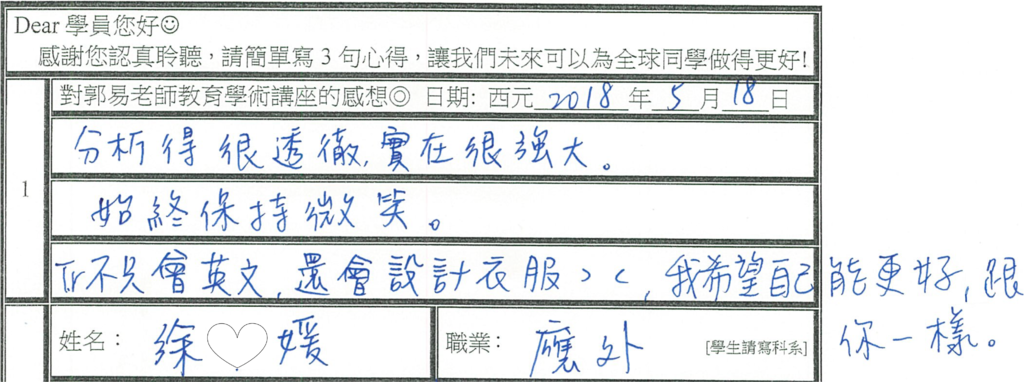 Dear 學員您好☺
感謝您認真聆聽，請簡單寫 3 句心得，讓我們未來可以為全球同學做得更好!
對郭易老師教育學術講座的感想◎ 日期: 西元 2018 年 5 月 18 日
1
分析得很透徹,實在很強大。
始終保持微笑。
Tr不只會英文,還會設計衣服>< ,我希望自己能更好,跟
你一樣。
姓名： 徐♡媛
職業: 應外 [學生請寫科系]